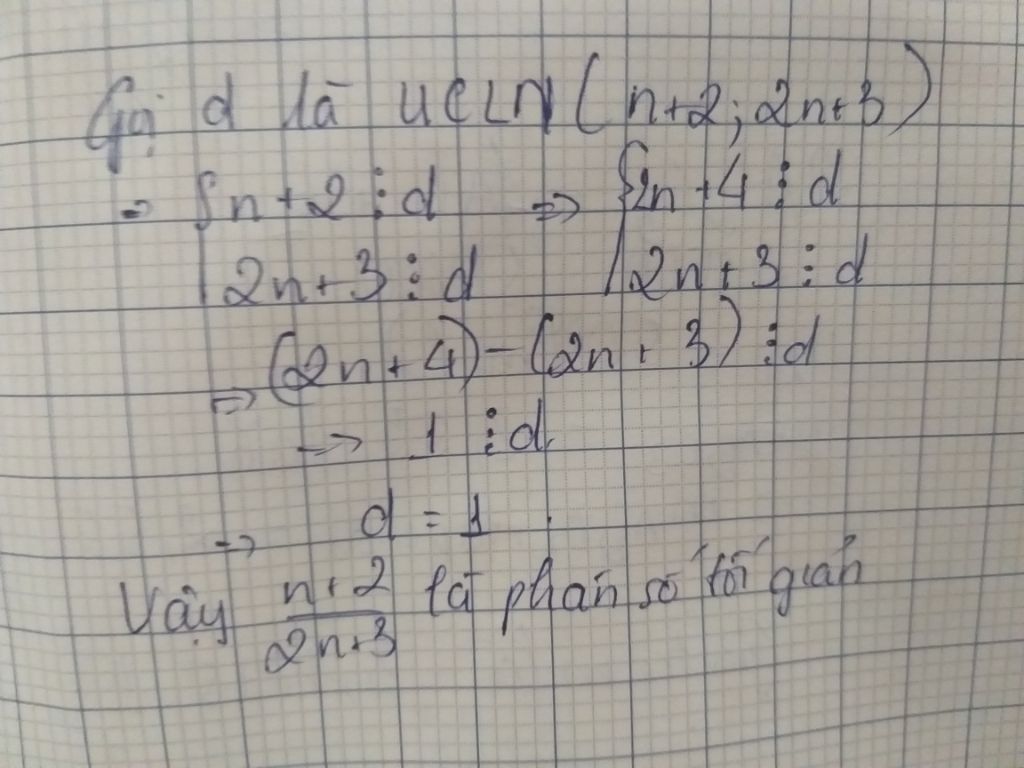 Gọi d là ƯCLN (n+2; 2n+3)
=> { n+2 ⋮ d => { 2n+4 ⋮ d
2n+3 ⋮ d 2n+3 ⋮ d
=> (2n+4) - (2n+3) ⋮ d
=> 1 ⋮ d
=> d = 1
Vậy \frac{n+2}{2n+3} là phân số tối giản